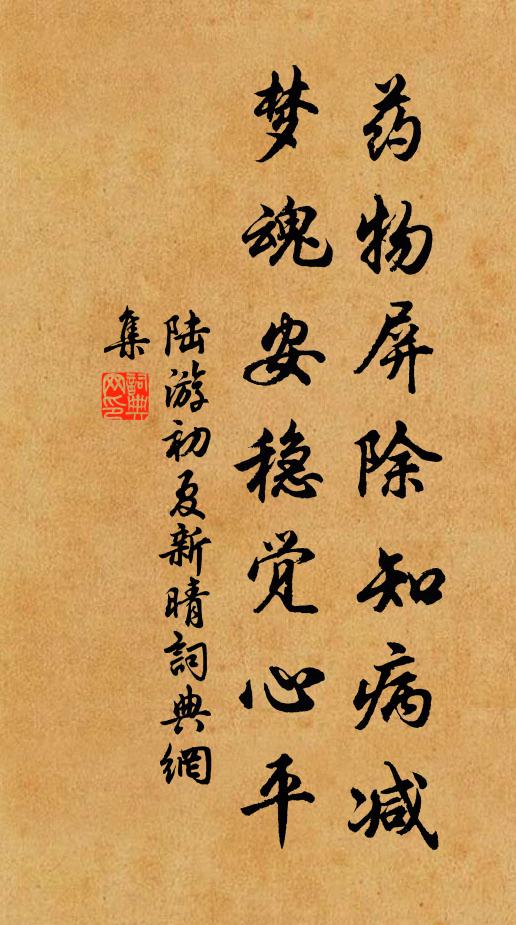 药物屏除知病减
梦魂安稳觉心平
陆游初夏新晴詞典網
集
詞典
网印